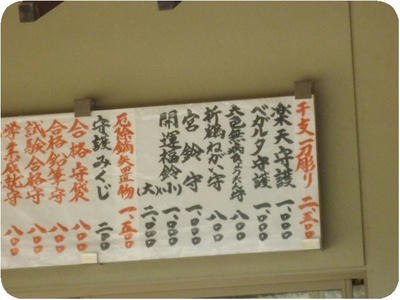 干支一刀彫り 二、五〇〇
楽天守護 一、〇〇〇
ベガルタ守護 一、〇〇〇
六色無病ひょうたん守 八〇〇
祈鶴ねがい守 八〇〇
宮鈴守 一、〇〇〇
開運福鈴(大)(小) 二、〇〇〇 一、〇〇〇
厄除鏑矢置物 一、五〇〇
守護みくじ 二〇〇
合格守袋 八〇〇
合格鉛筆守 八〇〇
試験合格守 八〇〇
学業成就守 八〇〇